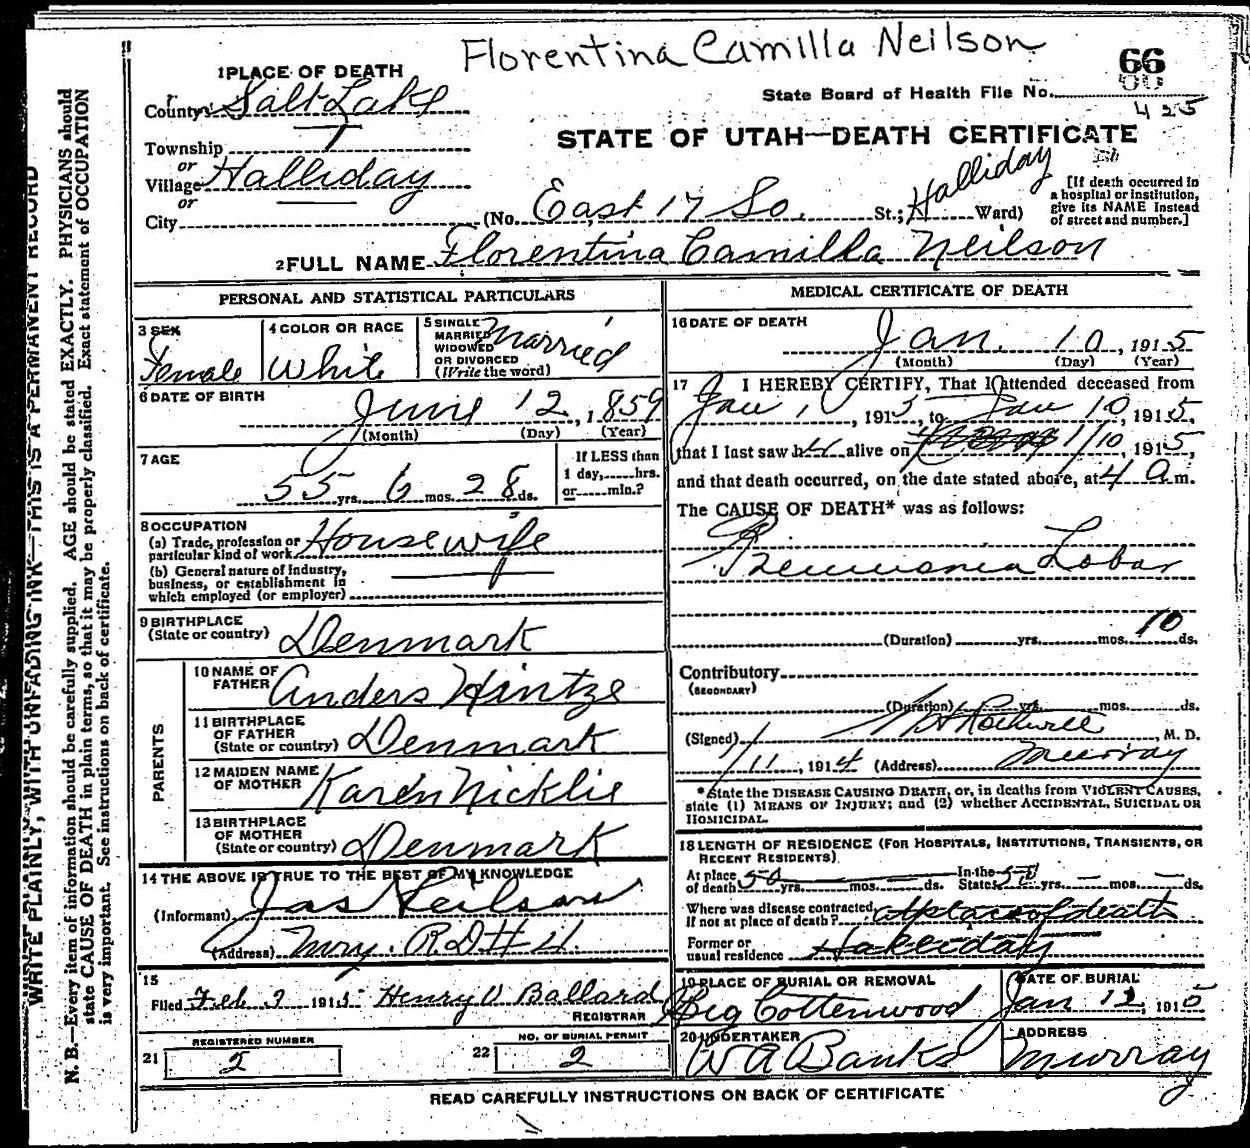 Florentina Camilla Neilson
66
State Board of Health File No.
425
STATE OF UTAH—DEATH CERTIFICATE
1 PLACE OF DEATH
County Salt Lake
Township
or
Village Halliday
or
City
(No. East 17 So. St.; Halliday Ward)
[If death occurred in
a hospital or institution,
give its NAME instead
of street and number.]
2 FULL NAME Florentina Camilla Neilson
PERSONAL AND STATISTICAL PARTICULARS
3 SEX
Female
4 COLOR OR RACE
White
5 SINGLE
MARRIED
WIDOWED
OR DIVORCED
(Write the word)
Married
6 DATE OF BIRTH
June 12, 1859
(Month) (Day) (Year)
7 AGE
55 yrs. 6 mos. 28 ds.
If LESS than
1 day, hrs.
or min.?
8 OCCUPATION
(a) Trade, profession or
particular kind of work Housewife
(b) General nature of industry,
business, or establishment in
which employed (or employer)
9 BIRTHPLACE
(State or country) Denmark
PARENTS
10 NAME OF
FATHER Anders Hintze
11 BIRTHPLACE
OF FATHER
(State or country) Denmark
12 MAIDEN NAME
OF MOTHER Karen Nicklie
13 BIRTHPLACE
OF MOTHER
(State or country) Denmark
14 THE ABOVE IS TRUE TO THE BEST OF MY KNOWLEDGE
(Informant) Jas Neilson
(Address) Mury. R.D #4.
15
Filed Feb 9 1915 Henry D Ballard
REGISTRAR
REGISTERED NUMBER
21 2
NO. OF BURIAL PERMIT
22 2
MEDICAL CERTIFICATE OF DEATH
16 DATE OF DEATH
Jan. 10, 1915
(Month) (Day) (Year)
17 I HEREBY CERTIFY, That I attended deceased from
Jan 1, 1915, to Jan 10, 1915,
that I last saw h alive on 1/10, 1915,
and that death occurred, on the date stated above, at 4 a m.
The CAUSE OF DEATH* was as follows:
Pneumonia Lobar
(Duration) yrs. mos. 10 ds.
Contributory
(SECONDARY)
(Duration) yrs. mos. ds.
(Signed) Rothwell, M. D.
1/11, 1914 (Address) Murray
*State the DISEASE CAUSING DEATH, or, in deaths from VIOLENT CAUSES,
state (1) MEANS OF INJURY; and (2) whether ACCIDENTAL, SUICIDAL OR
HOMICIDAL.
18 LENGTH OF RESIDENCE (FOR HOSPITALS, INSTITUTIONS, TRANSIENTS, OR
RECENT RESIDENTS).
At place
of death 50 yrs. mos. ds.
In the
State 50 yrs. mos. ds.
Where was disease contracted,
if not at place of death? at place of death
Former or
usual residence
19 PLACE OF BURIAL OR REMOVAL
Big Cottonwood
DATE OF BURIAL
Jan 12, 1915
20 UNDERTAKER
W A Banks
ADDRESS
Murray
READ CAREFULLY INSTRUCTIONS ON BACK OF CERTIFICATE
WRITE PLAINLY, WITH UNFADING INK—THIS IS A PERMANENT RECORD
N. B.—Every item of information should be carefully supplied. AGE should be stated EXACTLY. PHYSICIANS should
state CAUSE OF DEATH in plain terms, so that it may be properly classified. Exact statement of OCCUPATION
is very important. See instructions on back of certificate.